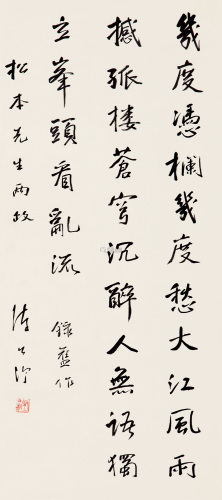 幾度憑欄幾度愁大江風雨
撼孤樓蒼穹沉醉人無語獨
立峯頭看亂流 錄舊作
松本先生兩政